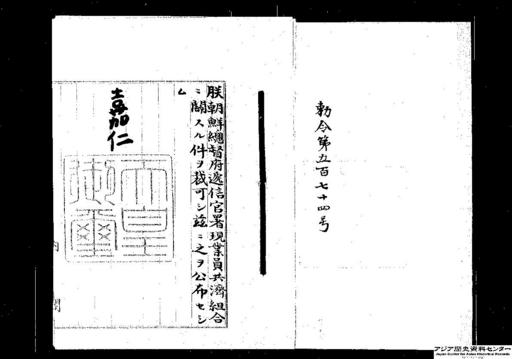 勅令第五百七十四号
朕朝鮮總督府遞信官署現業員共濟組合
ニ關スル件ヲ裁可シ茲ニ之ヲ公布セシ
ム
嘉仁
天皇御璽
内
閣
アジア歴史資料センター
Japan Center for Asian Historical Records